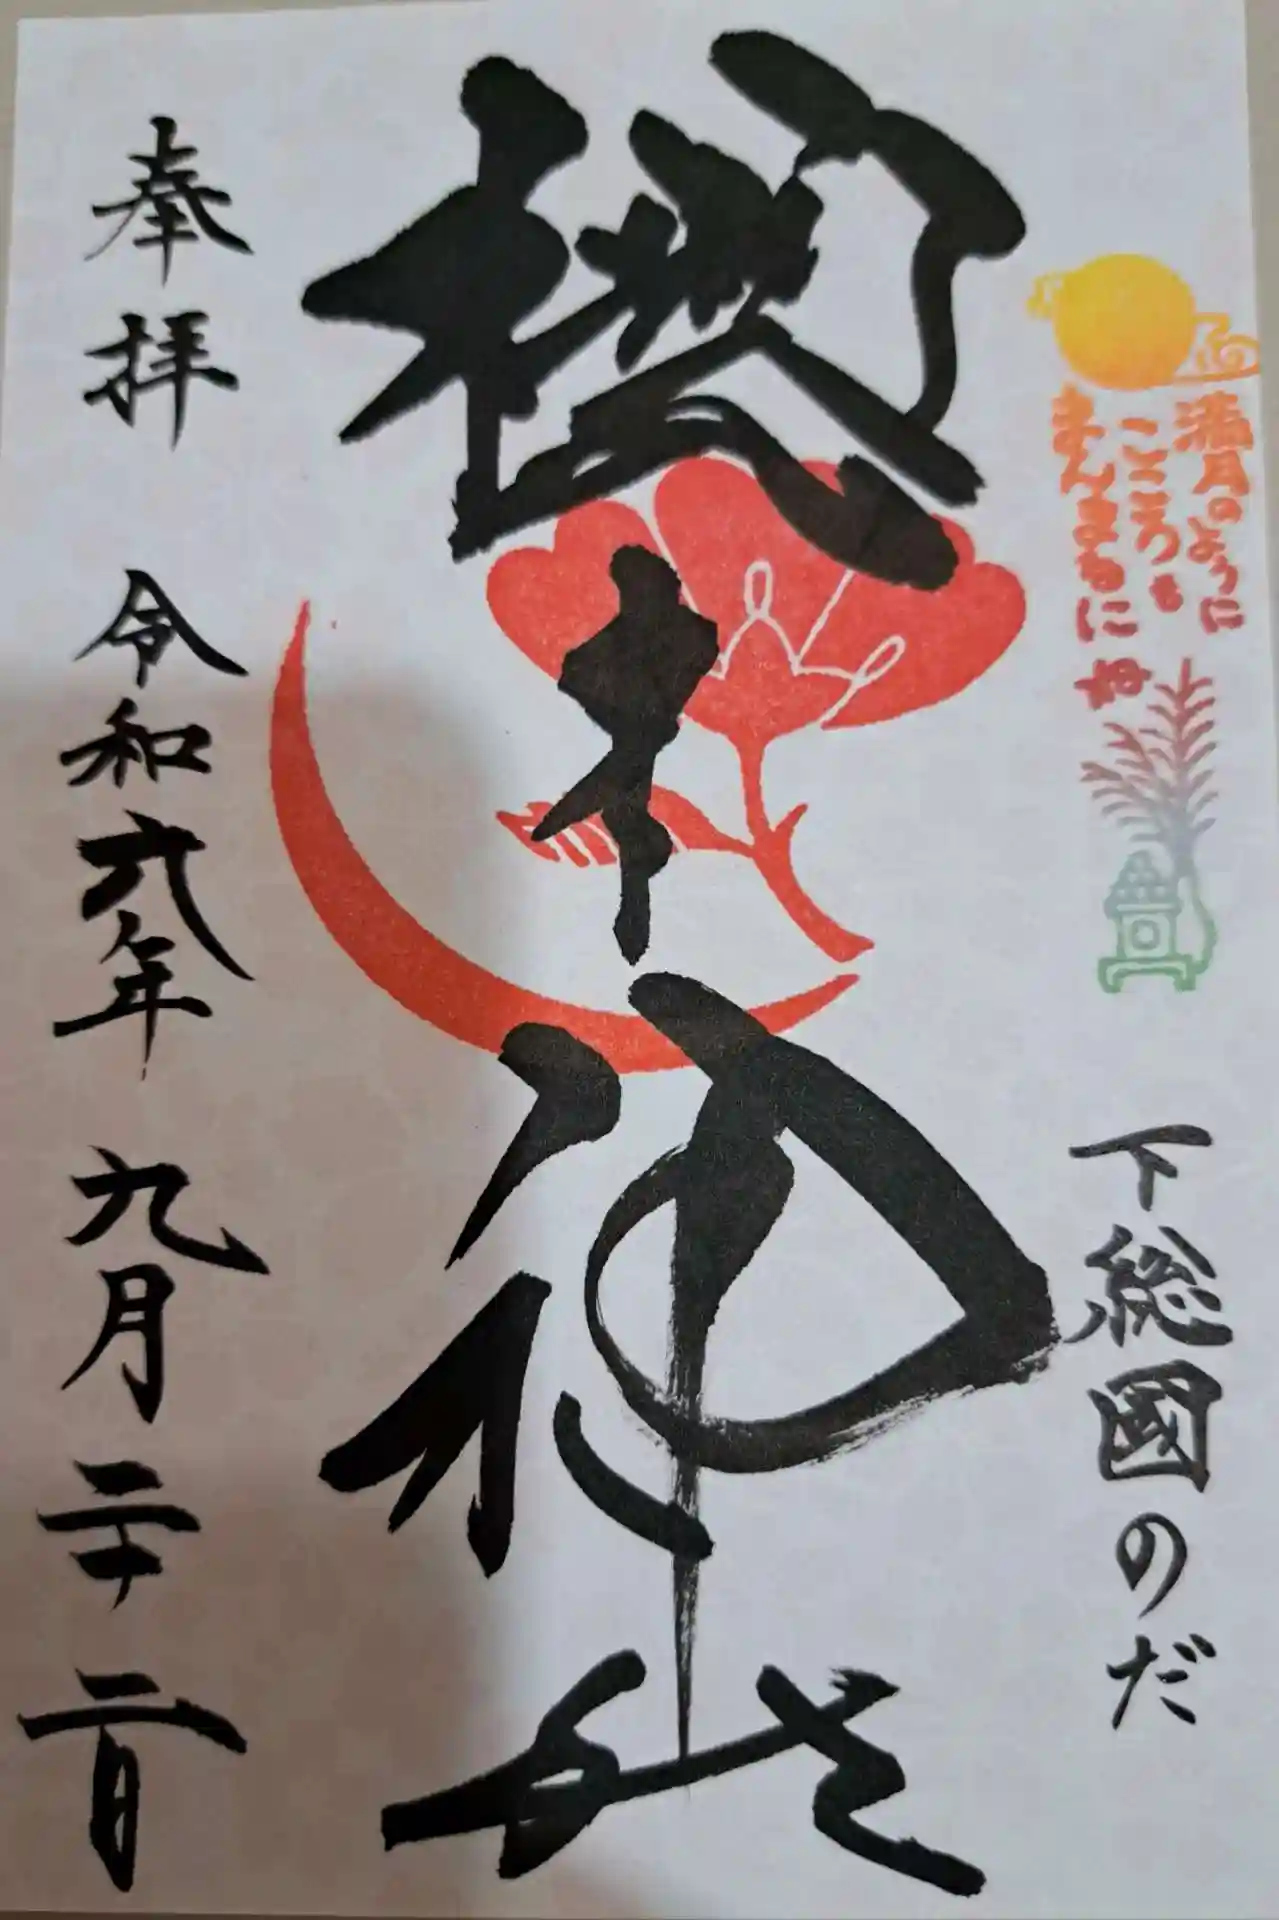 下総國のだ
満月のように
こころも
まんまるにね
櫻木神社
奉拝 令和六年 九月二十二日